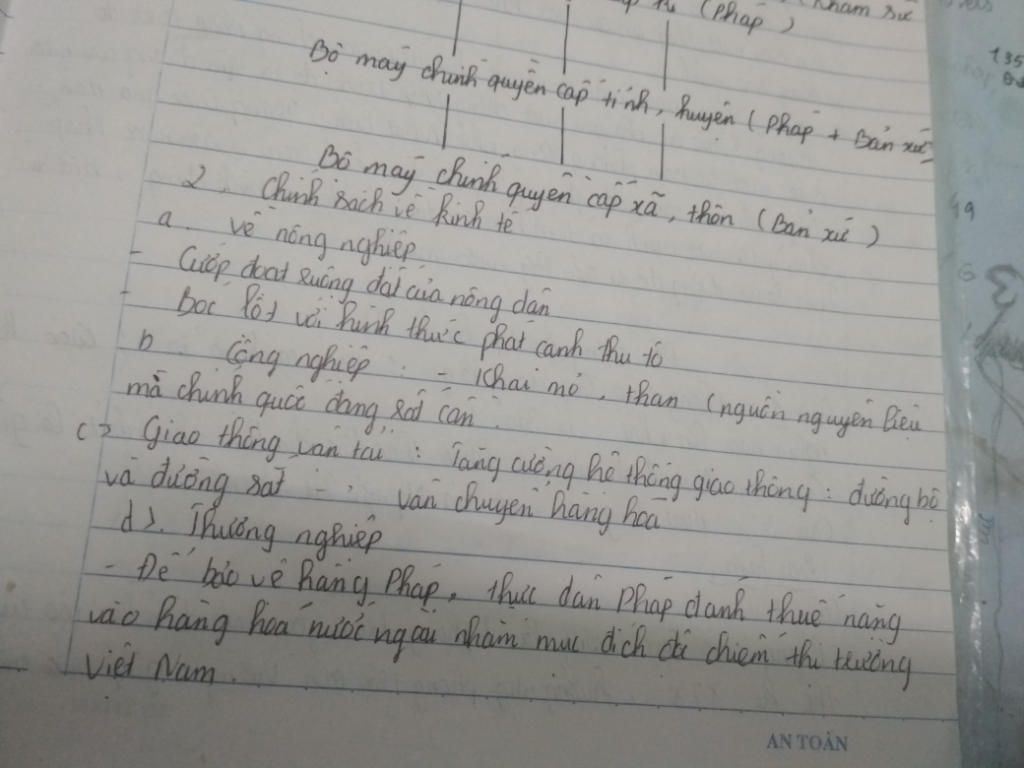 (Pháp)
Khâm sứ
Bộ máy chính quyền cấp tỉnh, huyện (Pháp + Bản xứ)
Bộ máy chính quyền cấp xã, thôn (Bản xứ)
2. Chính sách về kinh tế
a. về nông nghiệp
- Cướp đoạt ruộng đất của nông dân
- Bóc lột với hình thức phát canh thu tô
b Công nghiệp : - Khai mỏ, than (nguồn nguyên liệu
mà chính quốc đang rất cần.
c> Giao thông vận tải : Tăng cường hệ thống giao thông : đường bộ
và đường sắt - , vận chuyển hàng hóa
d>. Thương nghiệp
- Để bảo vệ hàng Pháp, thực dân Pháp đánh thuế nặng
vào hàng hóa nước ngoài nhằm mục đích để chiếm thị trường
Việt Nam.
AN TOÀN
135
49